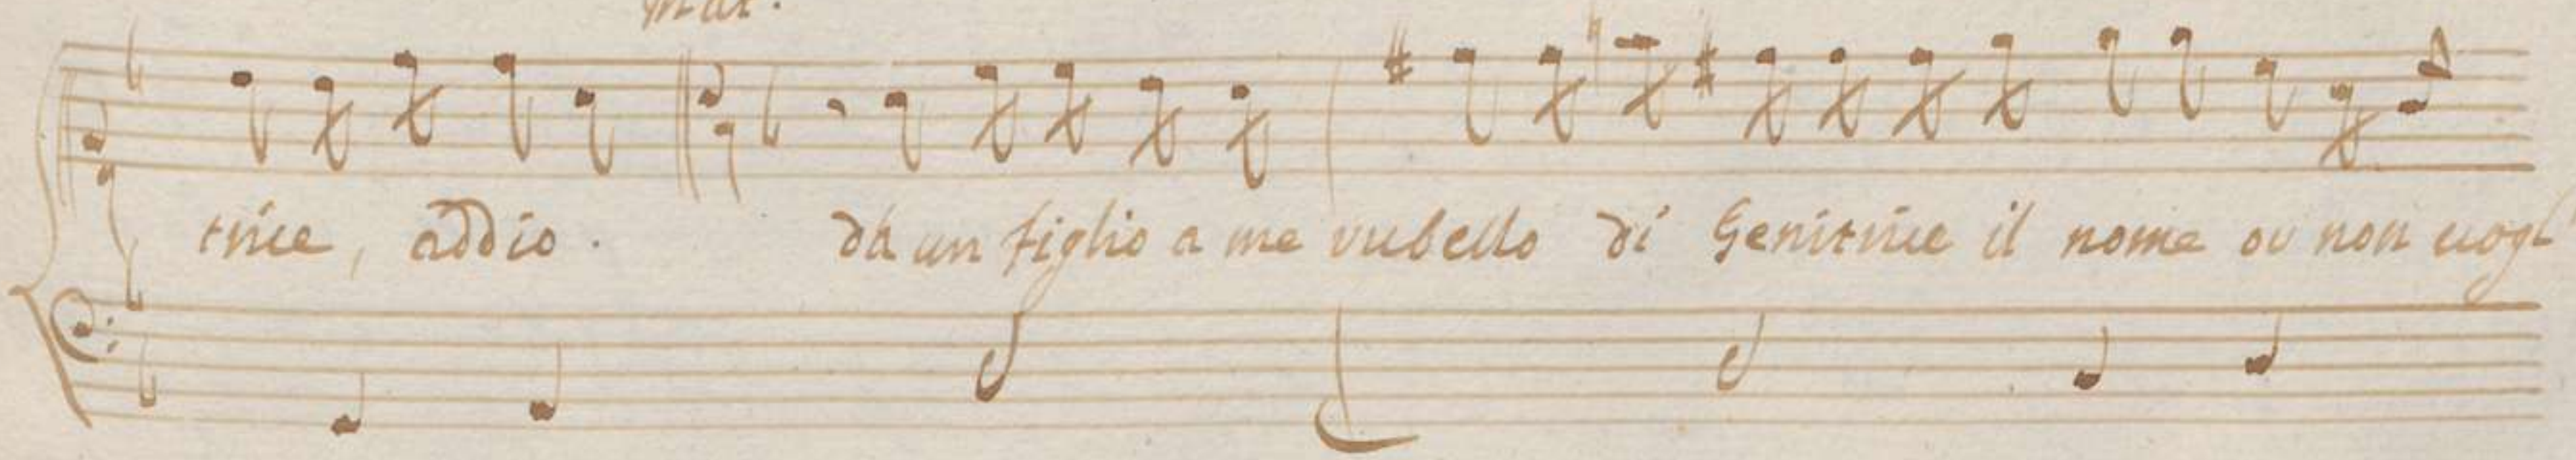 Mar.
trice, addio. da un figlio a me rubello di Genitrice il nome or non vogl